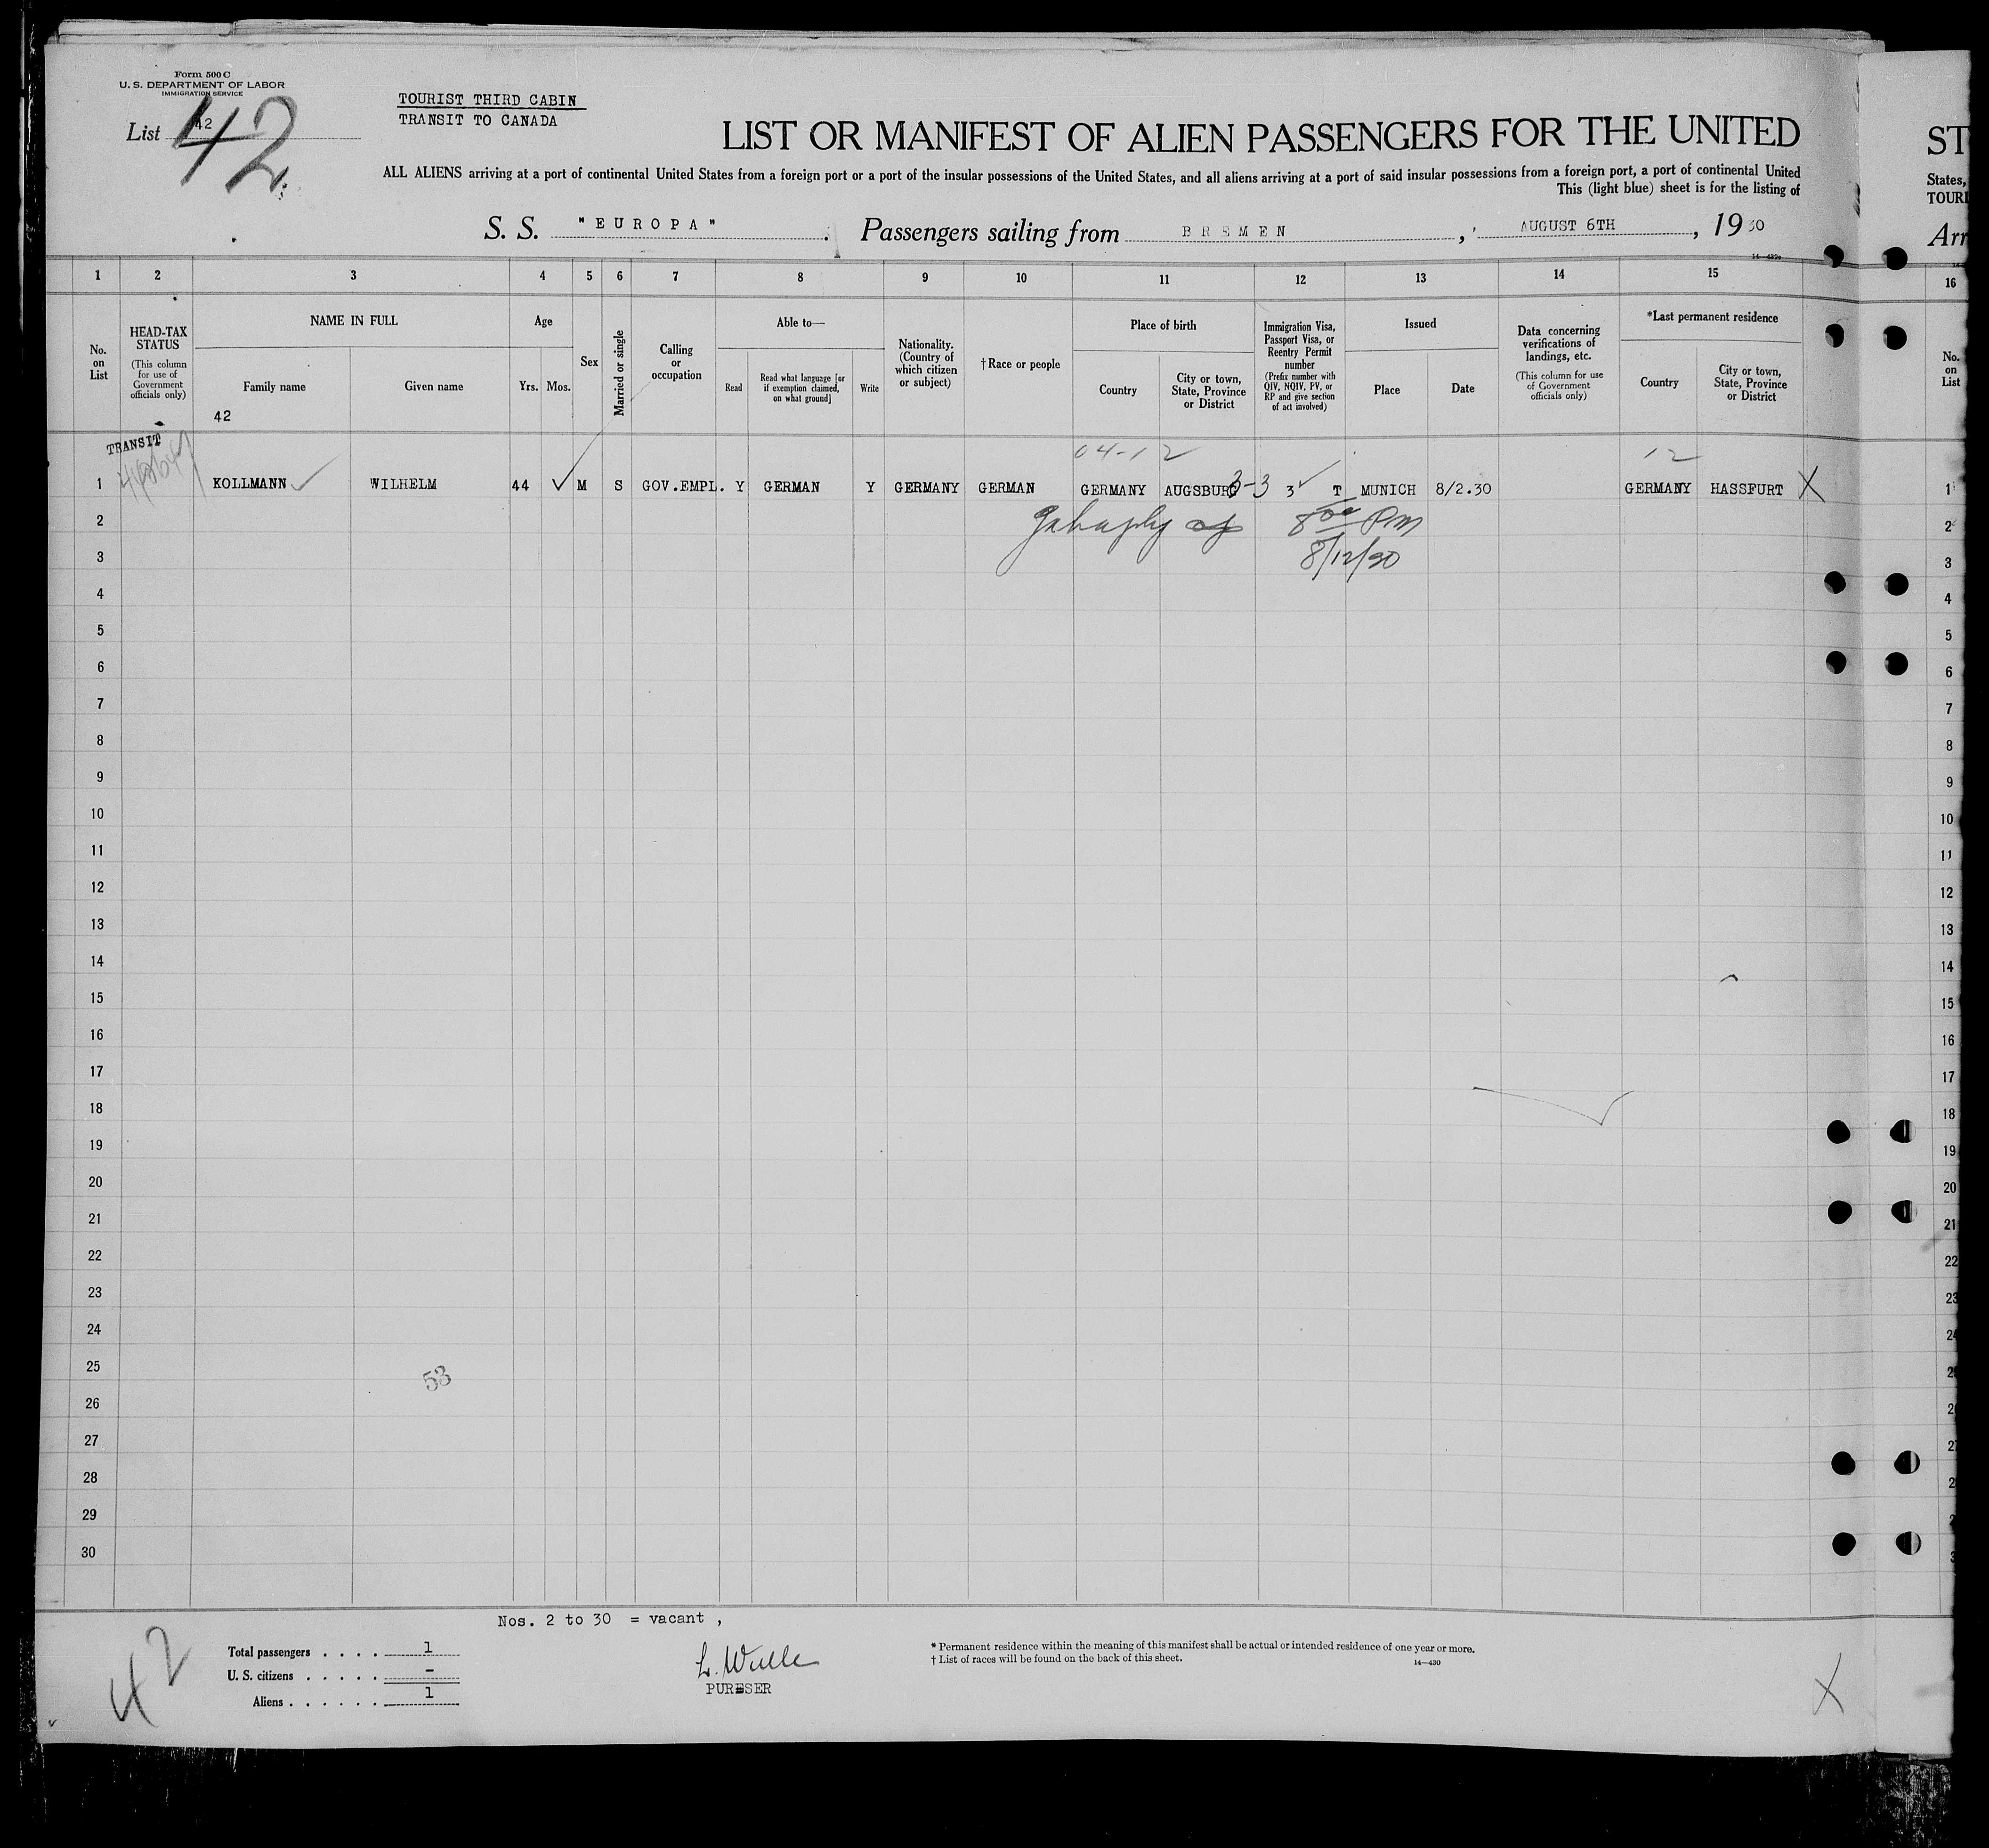 Form 500 C
U. S. DEPARTMENT OF LABOR
IMMIGRATION SERVICE
List 42
42
TOURIST THIRD CABIN
TRANSIT TO CANADA
LIST OR MANIFEST OF ALIEN PASSENGERS FOR THE UNITED
ALL ALIENS arriving at a port of continental United States from a foreign port or a port of the insular possessions of the United States, and all aliens arriving at a port of said insular possessions from a foreign port, a port of continental United
This (light blue) sheet is for the listing of
S. S. "EUROPA". Passengers sailing from BREMEN, AUGUST 6TH, 1930
14—430
ST
States,
TOURI
Arr
1 2 3 4 5 6 7 8 9 10 11 12 13 14 15 16
No. on List
HEAD-TAX STATUS
(This column for use of Government officials only)
NAME IN FULL
Family name
Given name
42
Age
Yrs. Mos.
Sex
Married or single
Calling or occupation
Able to—
Read
Read what language [or if exemption claimed, on what ground]
Write
Nationality. (Country of which citizen or subject)
† Race or people
Place of birth
Country
City or town, State, Province or District
Immigration Visa, Passport Visa, or Reentry Permit number
(Prefix number with QIV, NQIV, PV, or RP and give section of act involved)
Issued
Place
Date
Data concerning verifications of landings, etc.
(This column for use of Government officials only)
*Last permanent residence
Country
City or town, State, Province or District
No. on List
TRANSIT
04-12
12
1 KOLLMANN WILHELM 44 M S GOV.EMPL. Y GERMAN Y GERMANY GERMAN GERMANY AUGSBURG 3-3 3 T MUNICH 8/2.30 GERMANY HASSFURT X 1
2 8 00 PM 2
3 8/12/30 3
4 4
5 5
6 6
7 7
8 8
9 9
10 10
11 11
12 12
13 13
14 14
15 15
16 16
17 17
18 18
19 19
20 20
21 21
22 22
23 23
24 24
25
53
26
27
28
29
30
Nos. 2 to 30 = vacant ,
42
Total passengers . . . . 1
U. S. citizens . . . . . -
Aliens . . . . . . 1
PURSER
* Permanent residence within the meaning of this manifest shall be actual or intended residence of one year or more.
† List of races will be found on the back of this sheet.
14—430
X